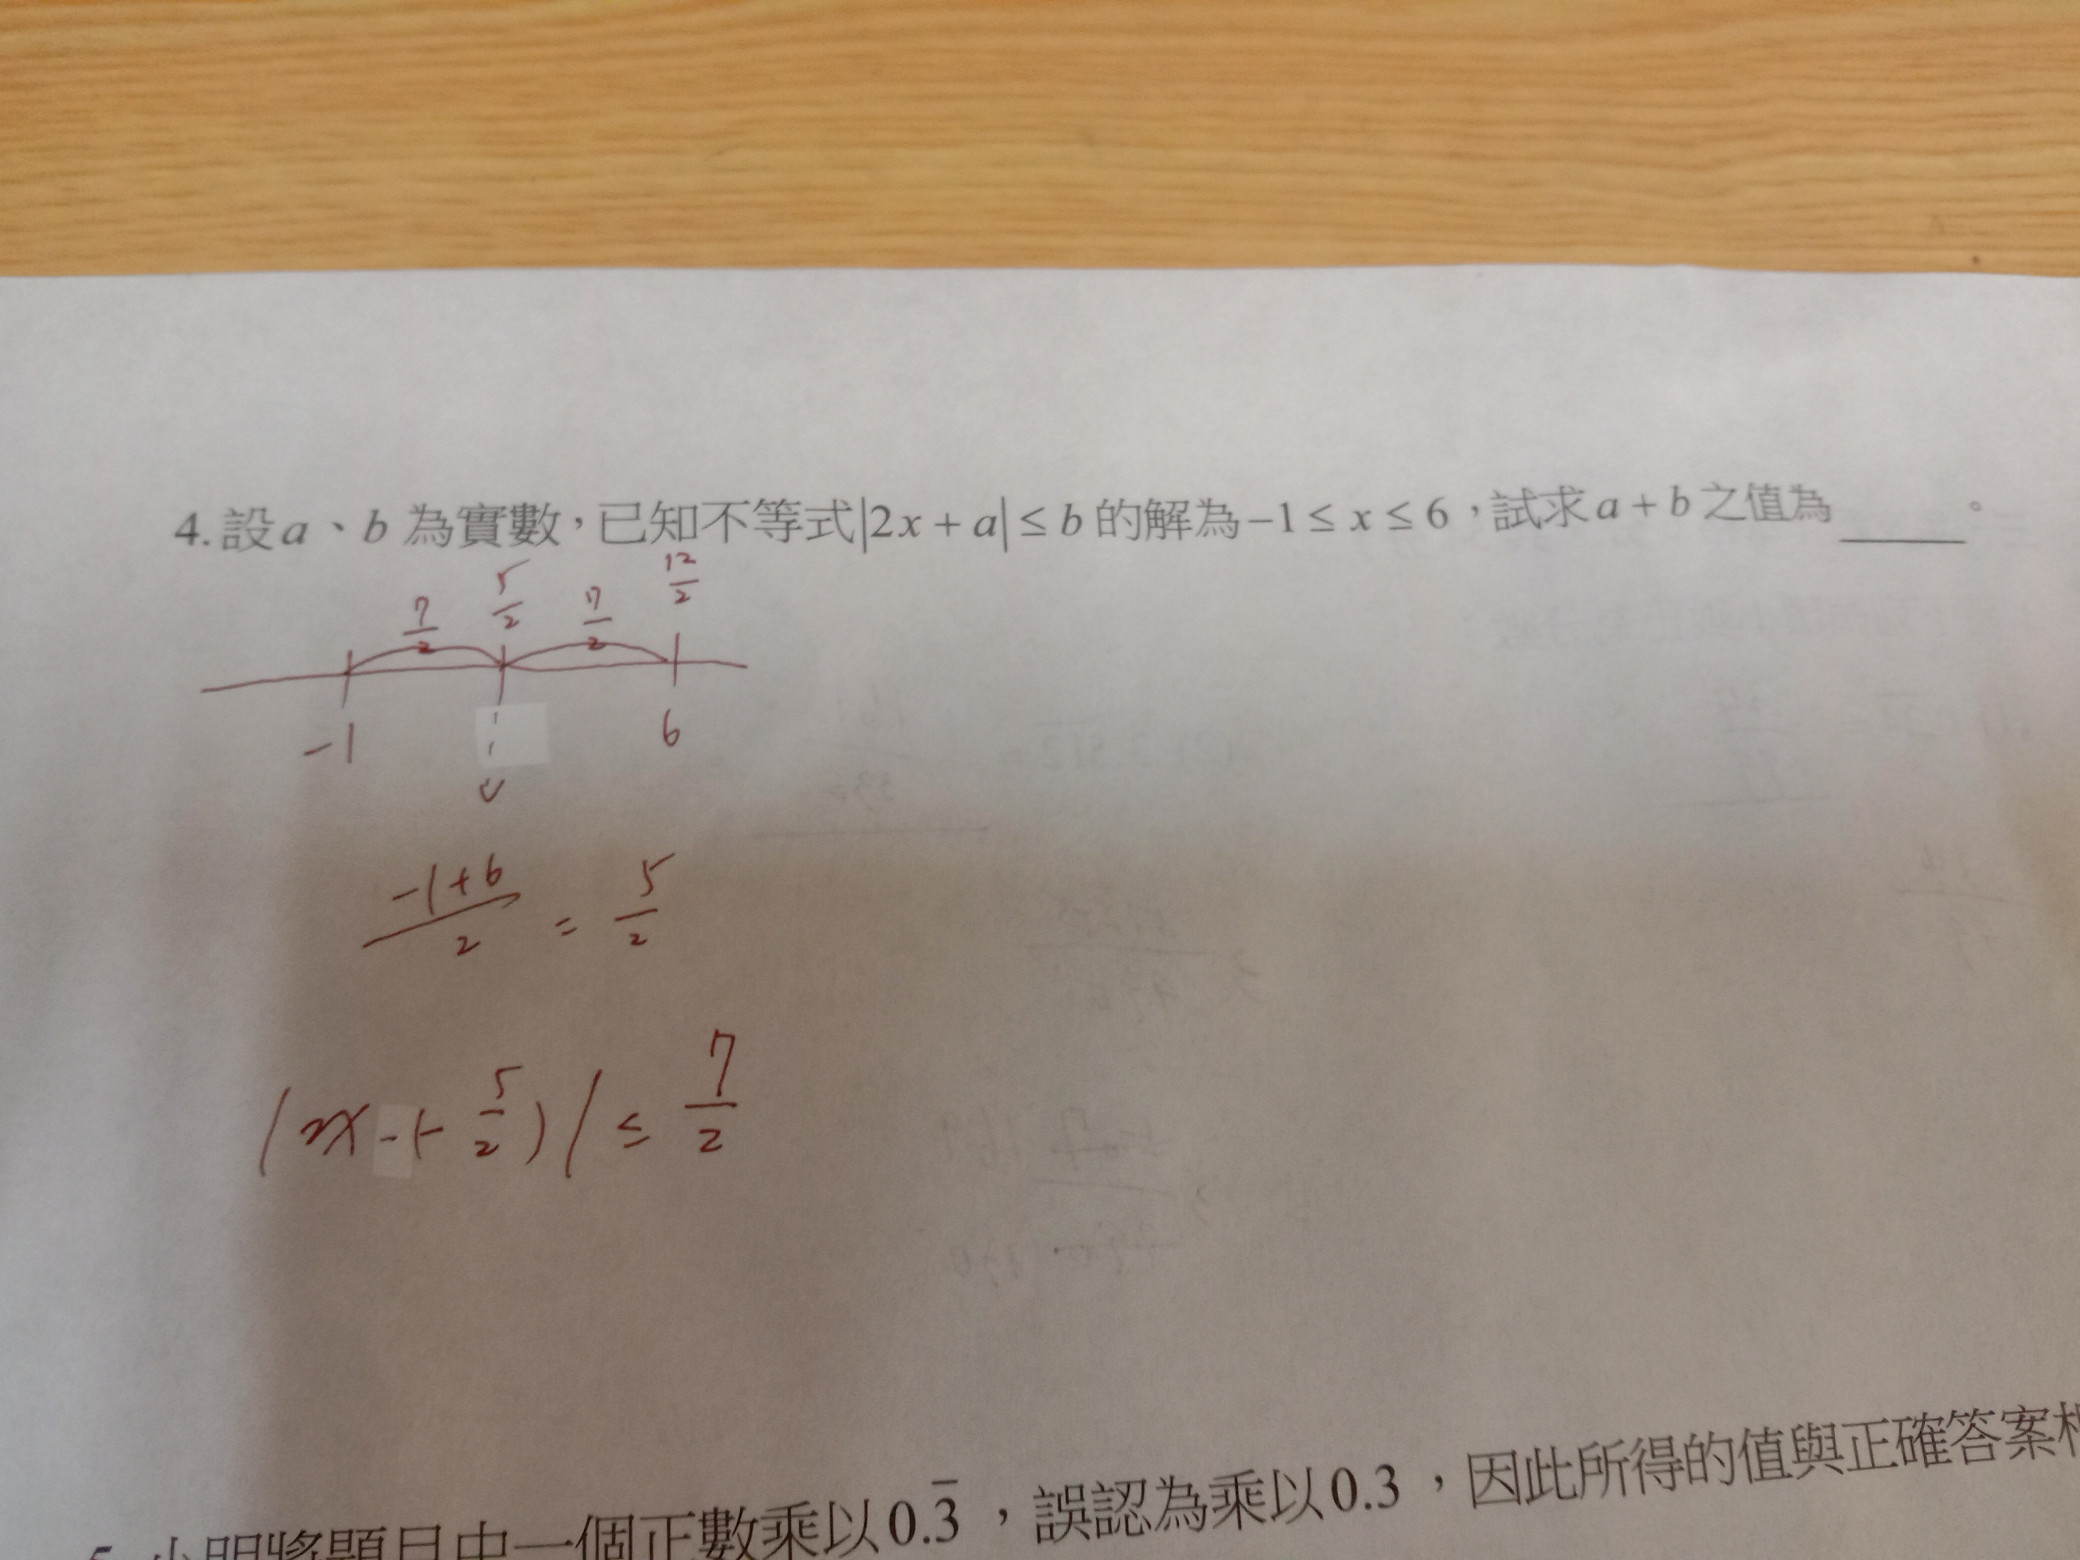 4.設a、b為實數,已知不等式|2x+a|≤b的解為−1≤x≤6,試求a+b之值為_____。
7/2 5/2 7/2 12/2
−1 6
(−1+6)/2 = 5/2
|x-(-5/2)|≤ 7/2
小明將題目中一個正數乘以0.3̅,誤認為乘以0.3,因此所得的值與正確答案相